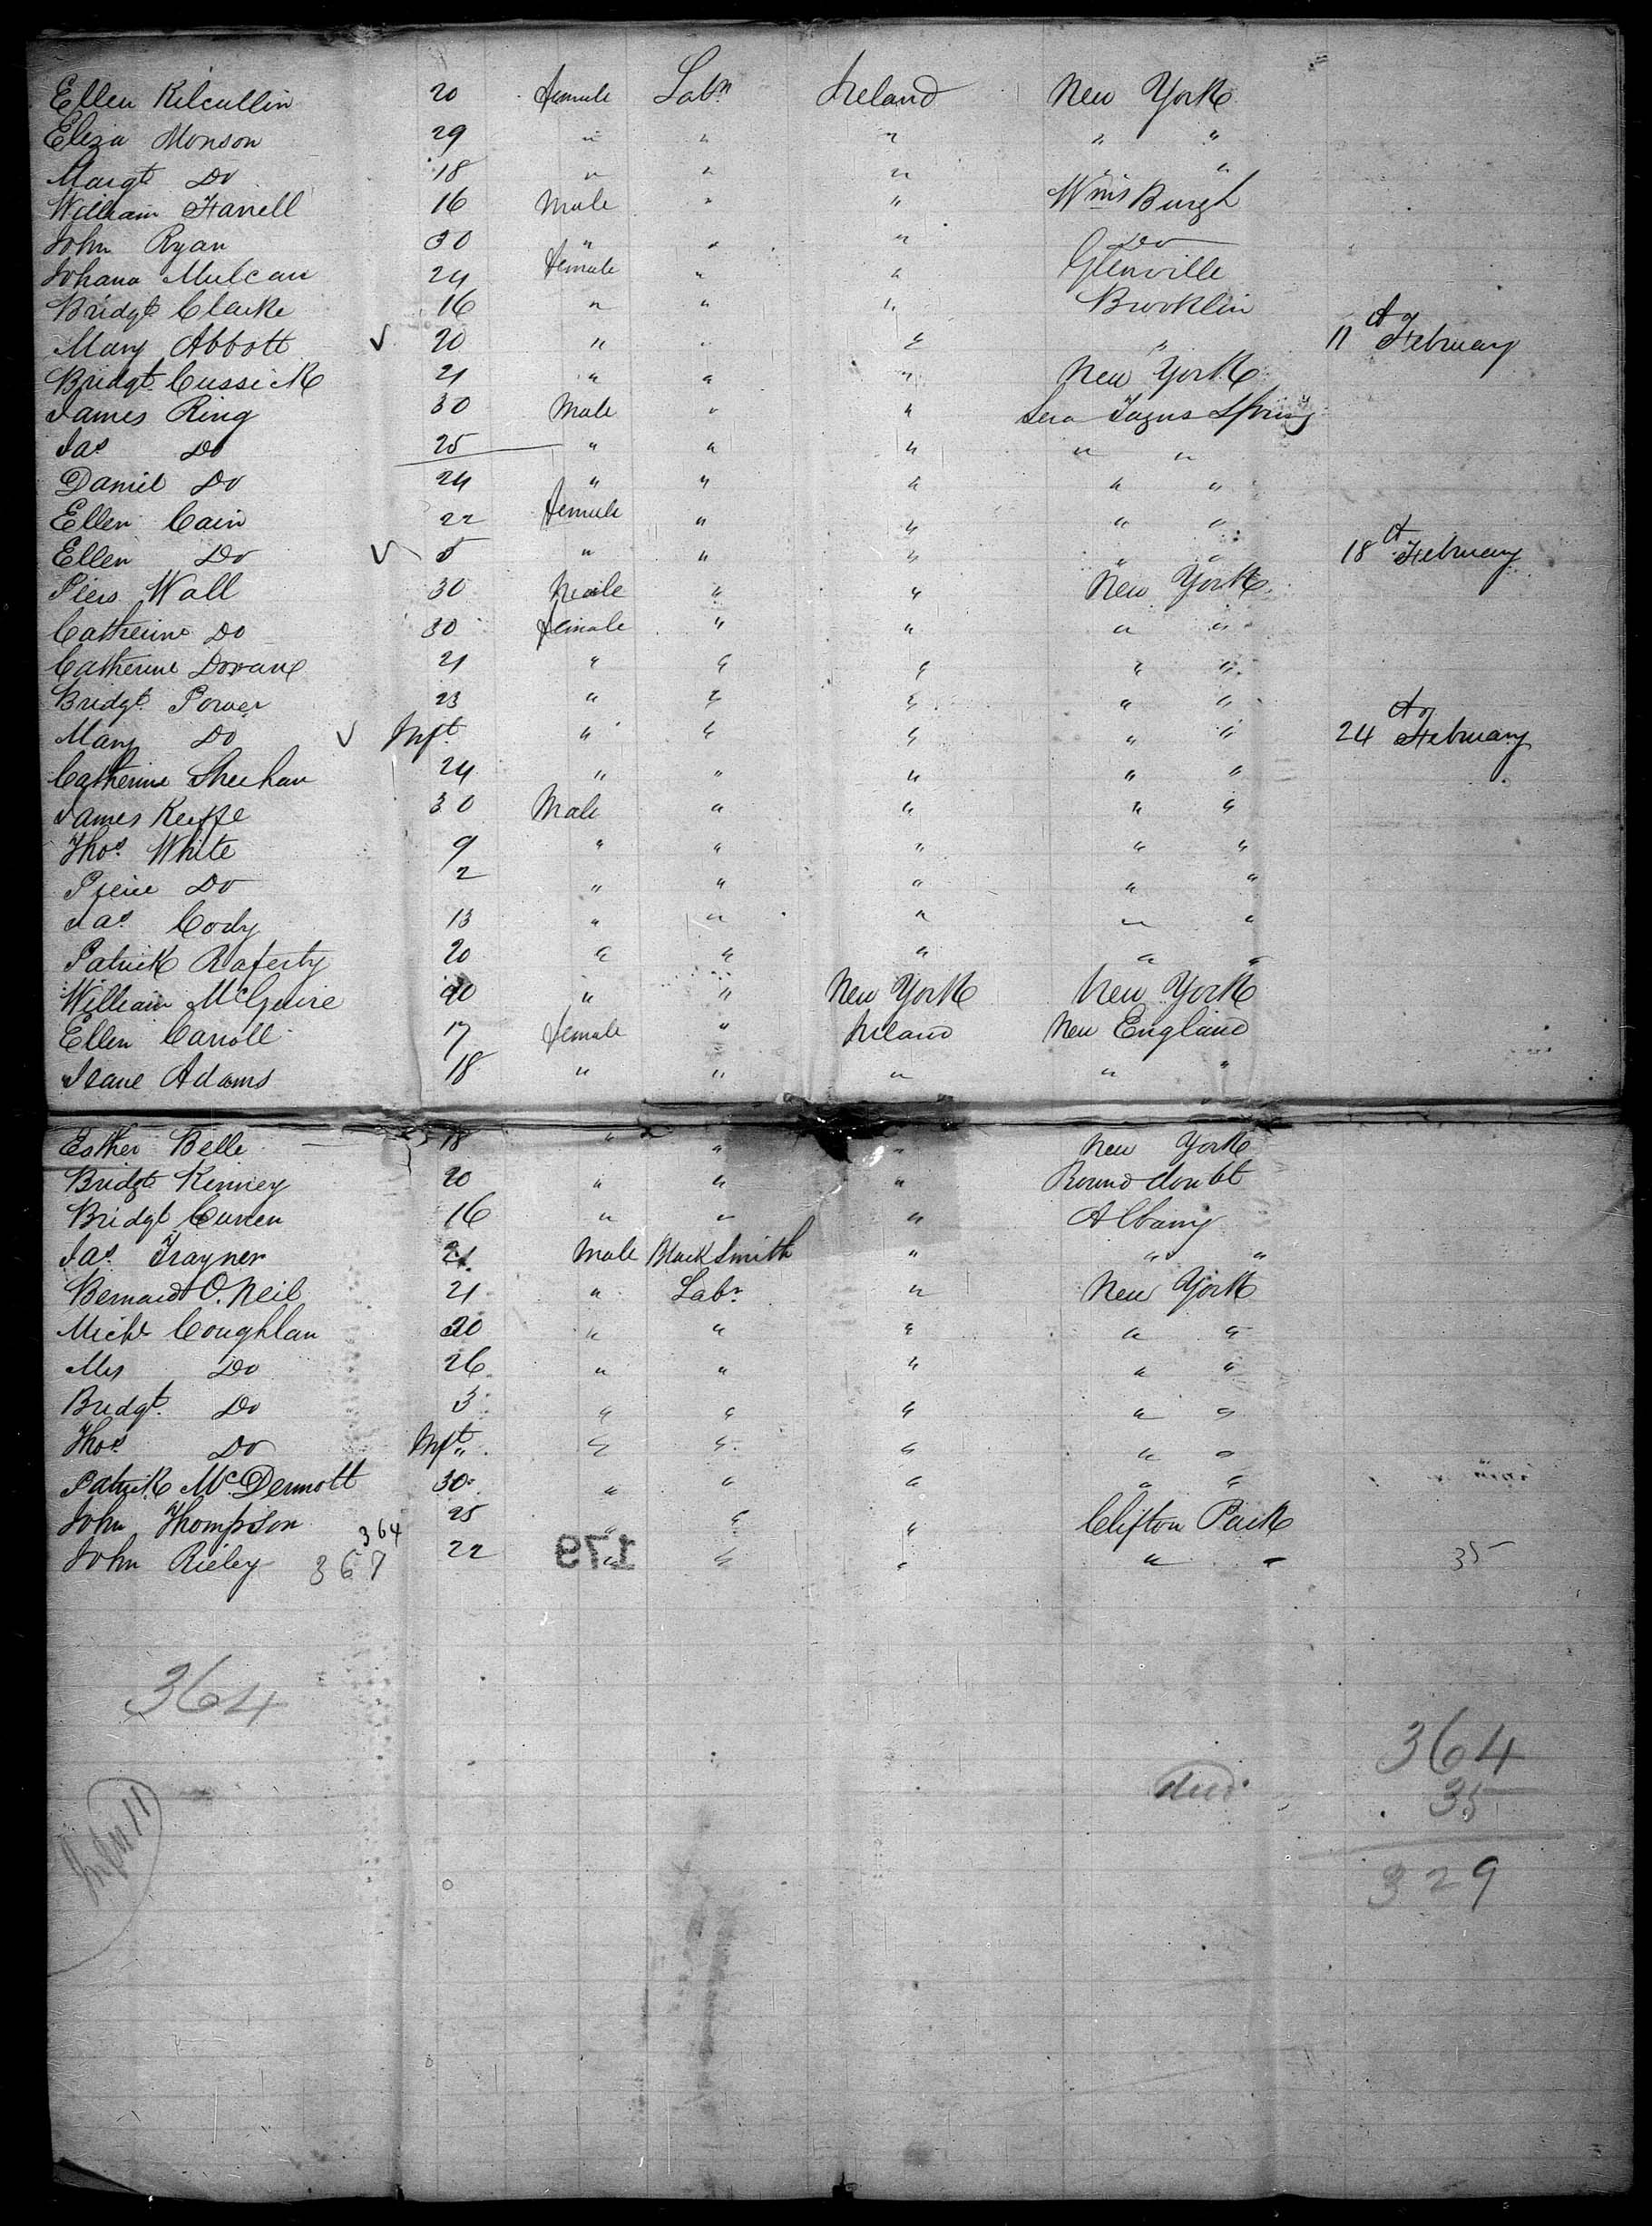 Ellen Kilcullin 20 female Labr Ireland New York
Eliza Monson 29 " " " " "
Margt Do 18 " " " " "
William Farrell 16 Male " " Wms Burgh
John Ryan 30 " " " Do
Johana Mulcan 24 female " " Glenville
Bridgt Clarke 16 " " " Brooklin
Mary Abbott ✓ 20 " " " " 11th February
Bridgt Cussick 21 " " " New York
James Ring 30 Male " " Sera Togus Spring
Jas Do 25 " " " " "
Daniel Do 24 " " " " "
Ellen Cain 22 female " " " "
Ellen Do ✓ 5 " " " " " 18th February
Piers Wall 30 Male " " New York
Catherine Do 30 female " " " "
Catherine Dorvane 21 " " " " "
Bridgt Power 23 " " " " "
Mary Do ✓ Inft " " " " " 24th February
Catherine Sheehan 24 " " " " "
James Keiffe 30 Male " " " "
Thos White 9 " " " " "
Pierce Do 2 " " " " "
Jas Cody 13 " " " " "
Patrick Raferty 20 " " " " "
William McGuire 40 " " New York New York
Ellen Carroll 17 female " Ireland New England
Jeane Adams 18 " " " " "
Esther Belle 18 " " " New York
Bridgt Kenney 20 " " " Round doubt
Bridgt Curren 16 " " " Albany
Jas Trayner 21 Male BlackSmith " " "
Bernard O.Neil 21 " Labr " New York
Michl Coughlan 30 " " " " "
Mrs Do 26 " " " " "
Bridgt Do 3 " " " " "
Thos Do Inft " " " " "
Patrick McDermott 30 " " " " "
John Thompson 25 " " " Clifton Park
364
John Rieley 367 22 " " " " " 35
179
364
364
died 35
329